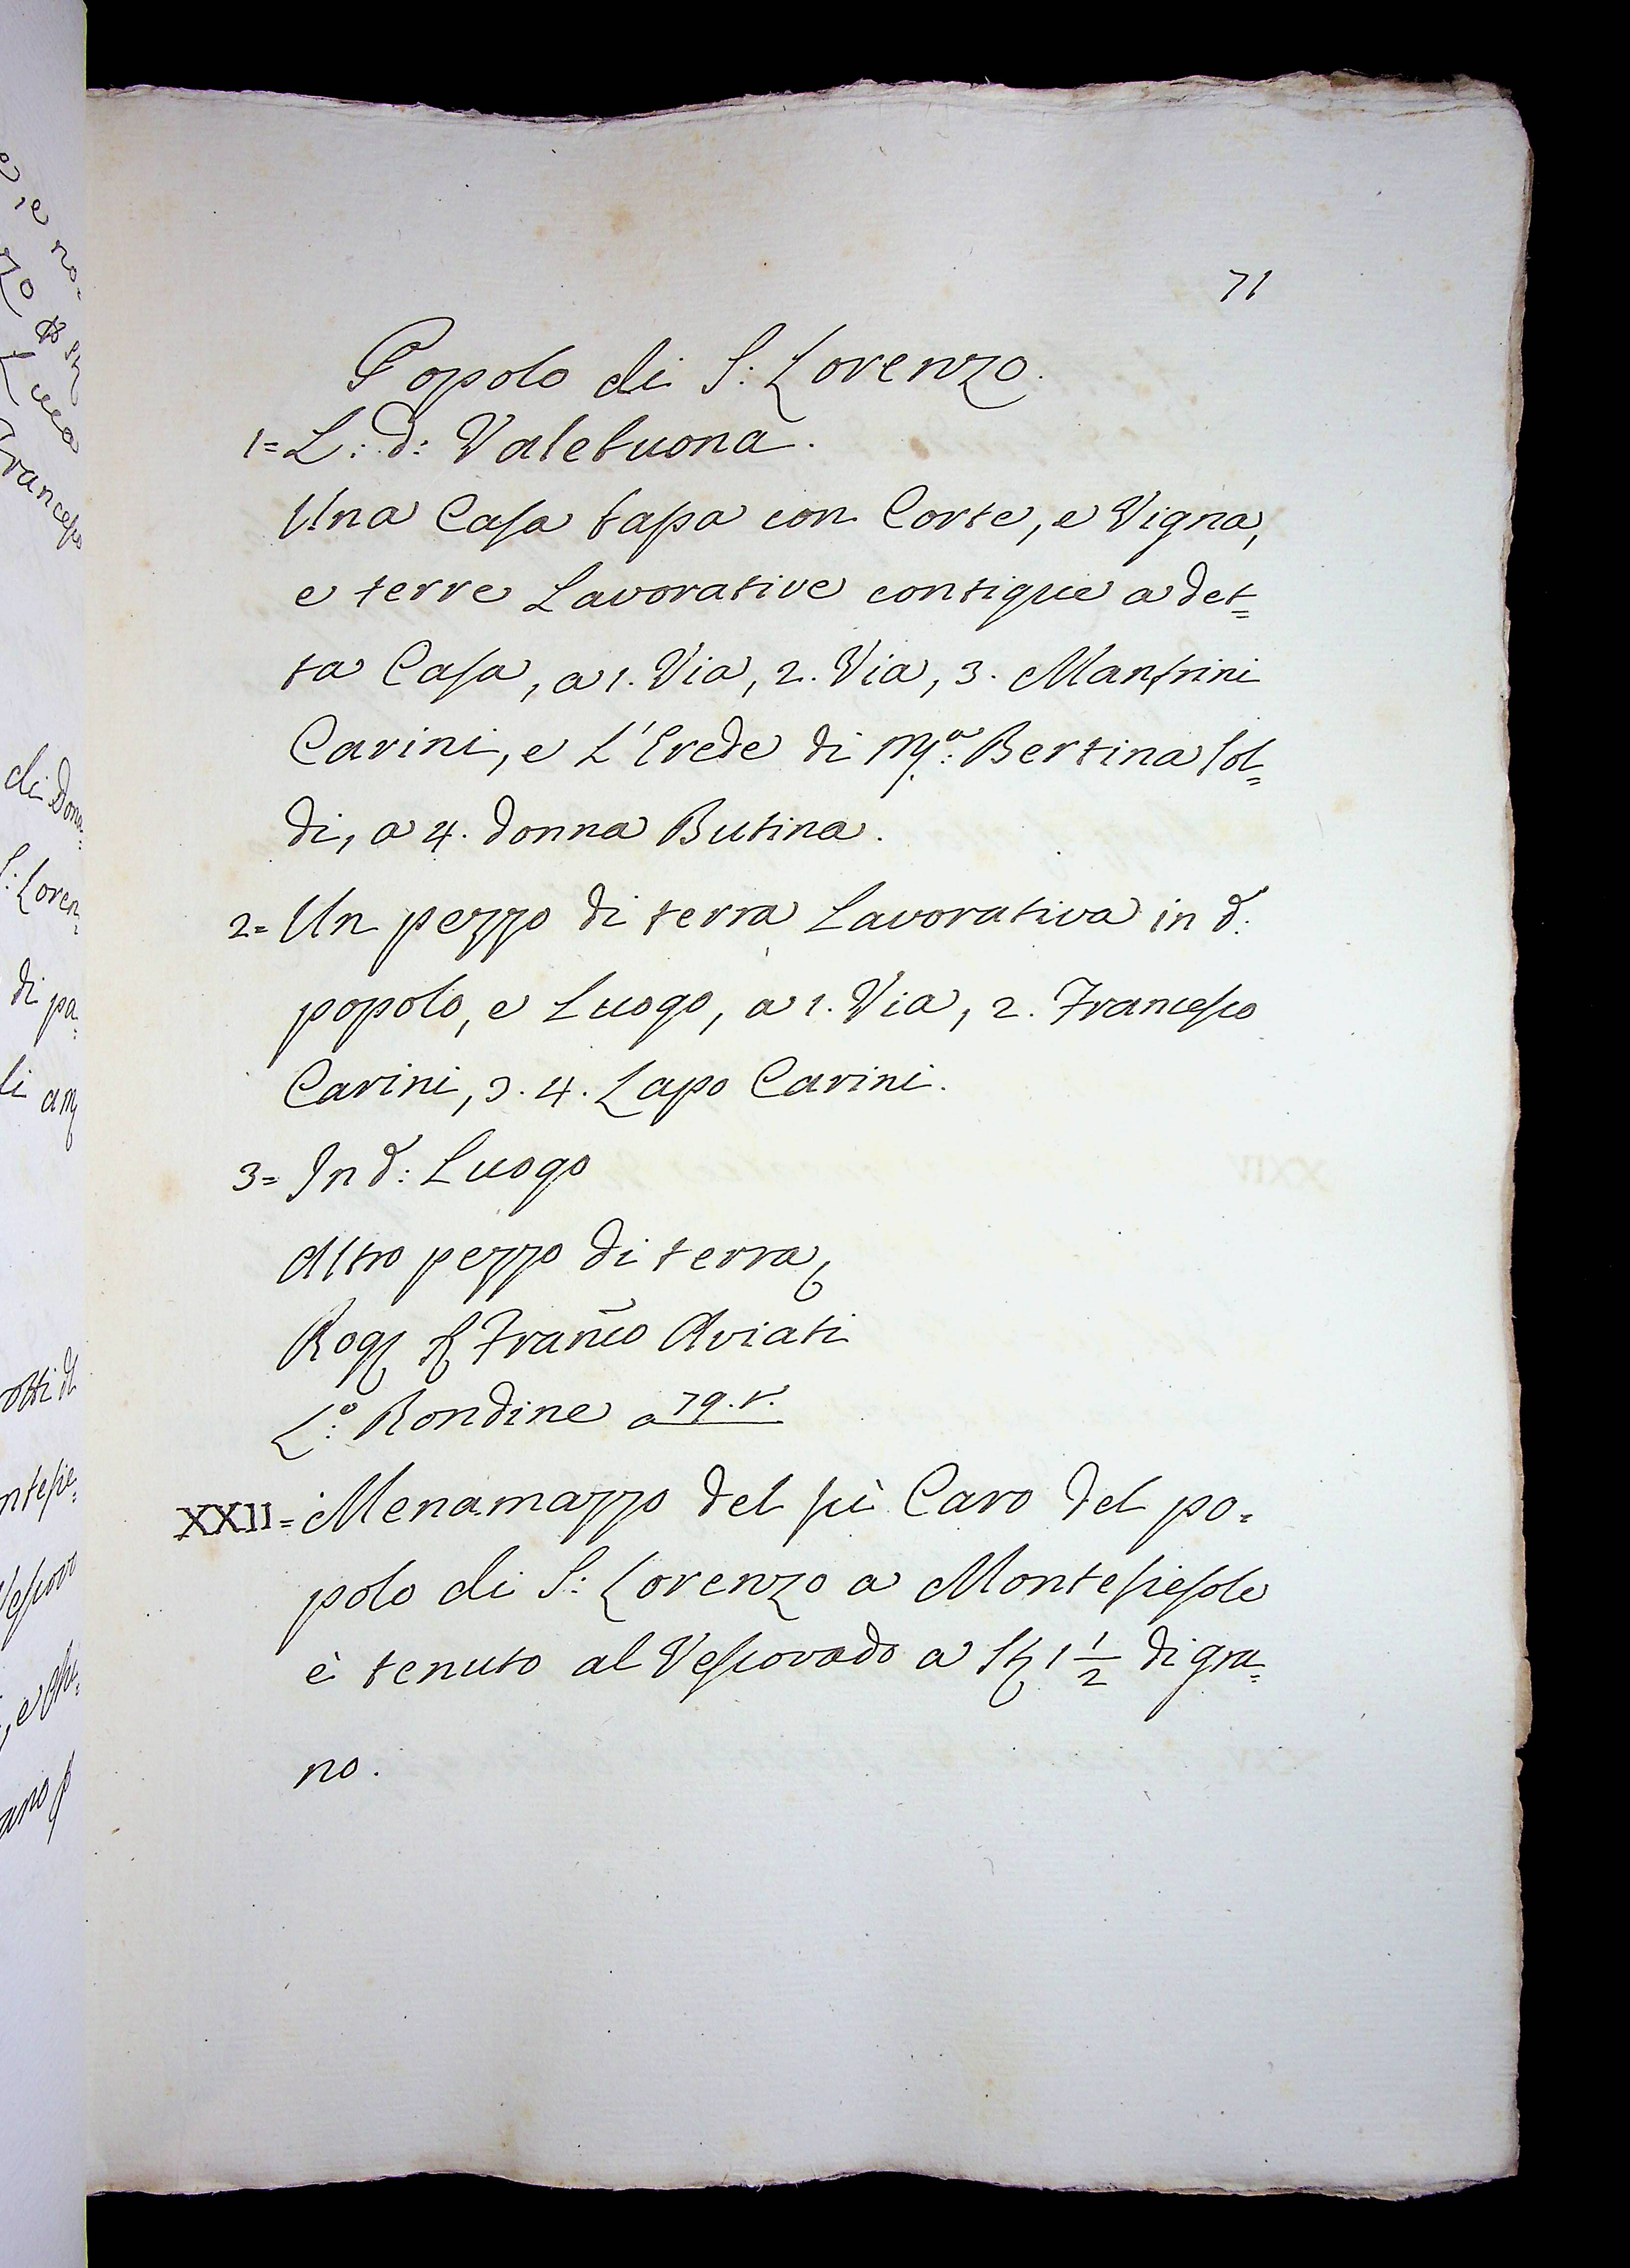 71
Popolo di S: Lorenzo.
1= L: d: Valebuona.
Una Casa bassa con Corte, e Vigna,
e terre Lavorative contigue a det=
ta Casa, a 1. Via, 2. Via, 3. Manfrini
Carini, e L'Erede di Mª: Bertina Sol=
di, a 4. donna Butina.
2= Un pezzo di terra Lavorativa in d:
popolo, e Luogo, a 1. Via, 2. Francesco
Carini, 3. 4. Lapo Carini.
3= In d: Luogo
Altro pezzo di terra
Rog Franco Aviati
L:º Rondine a 79. v.
XXII= Menamazzo del fù Caro del po=
polo di S: Lorenzo a Montefiesole
è tenuto al Vescovado a St 1 1/2 di gra=
no.